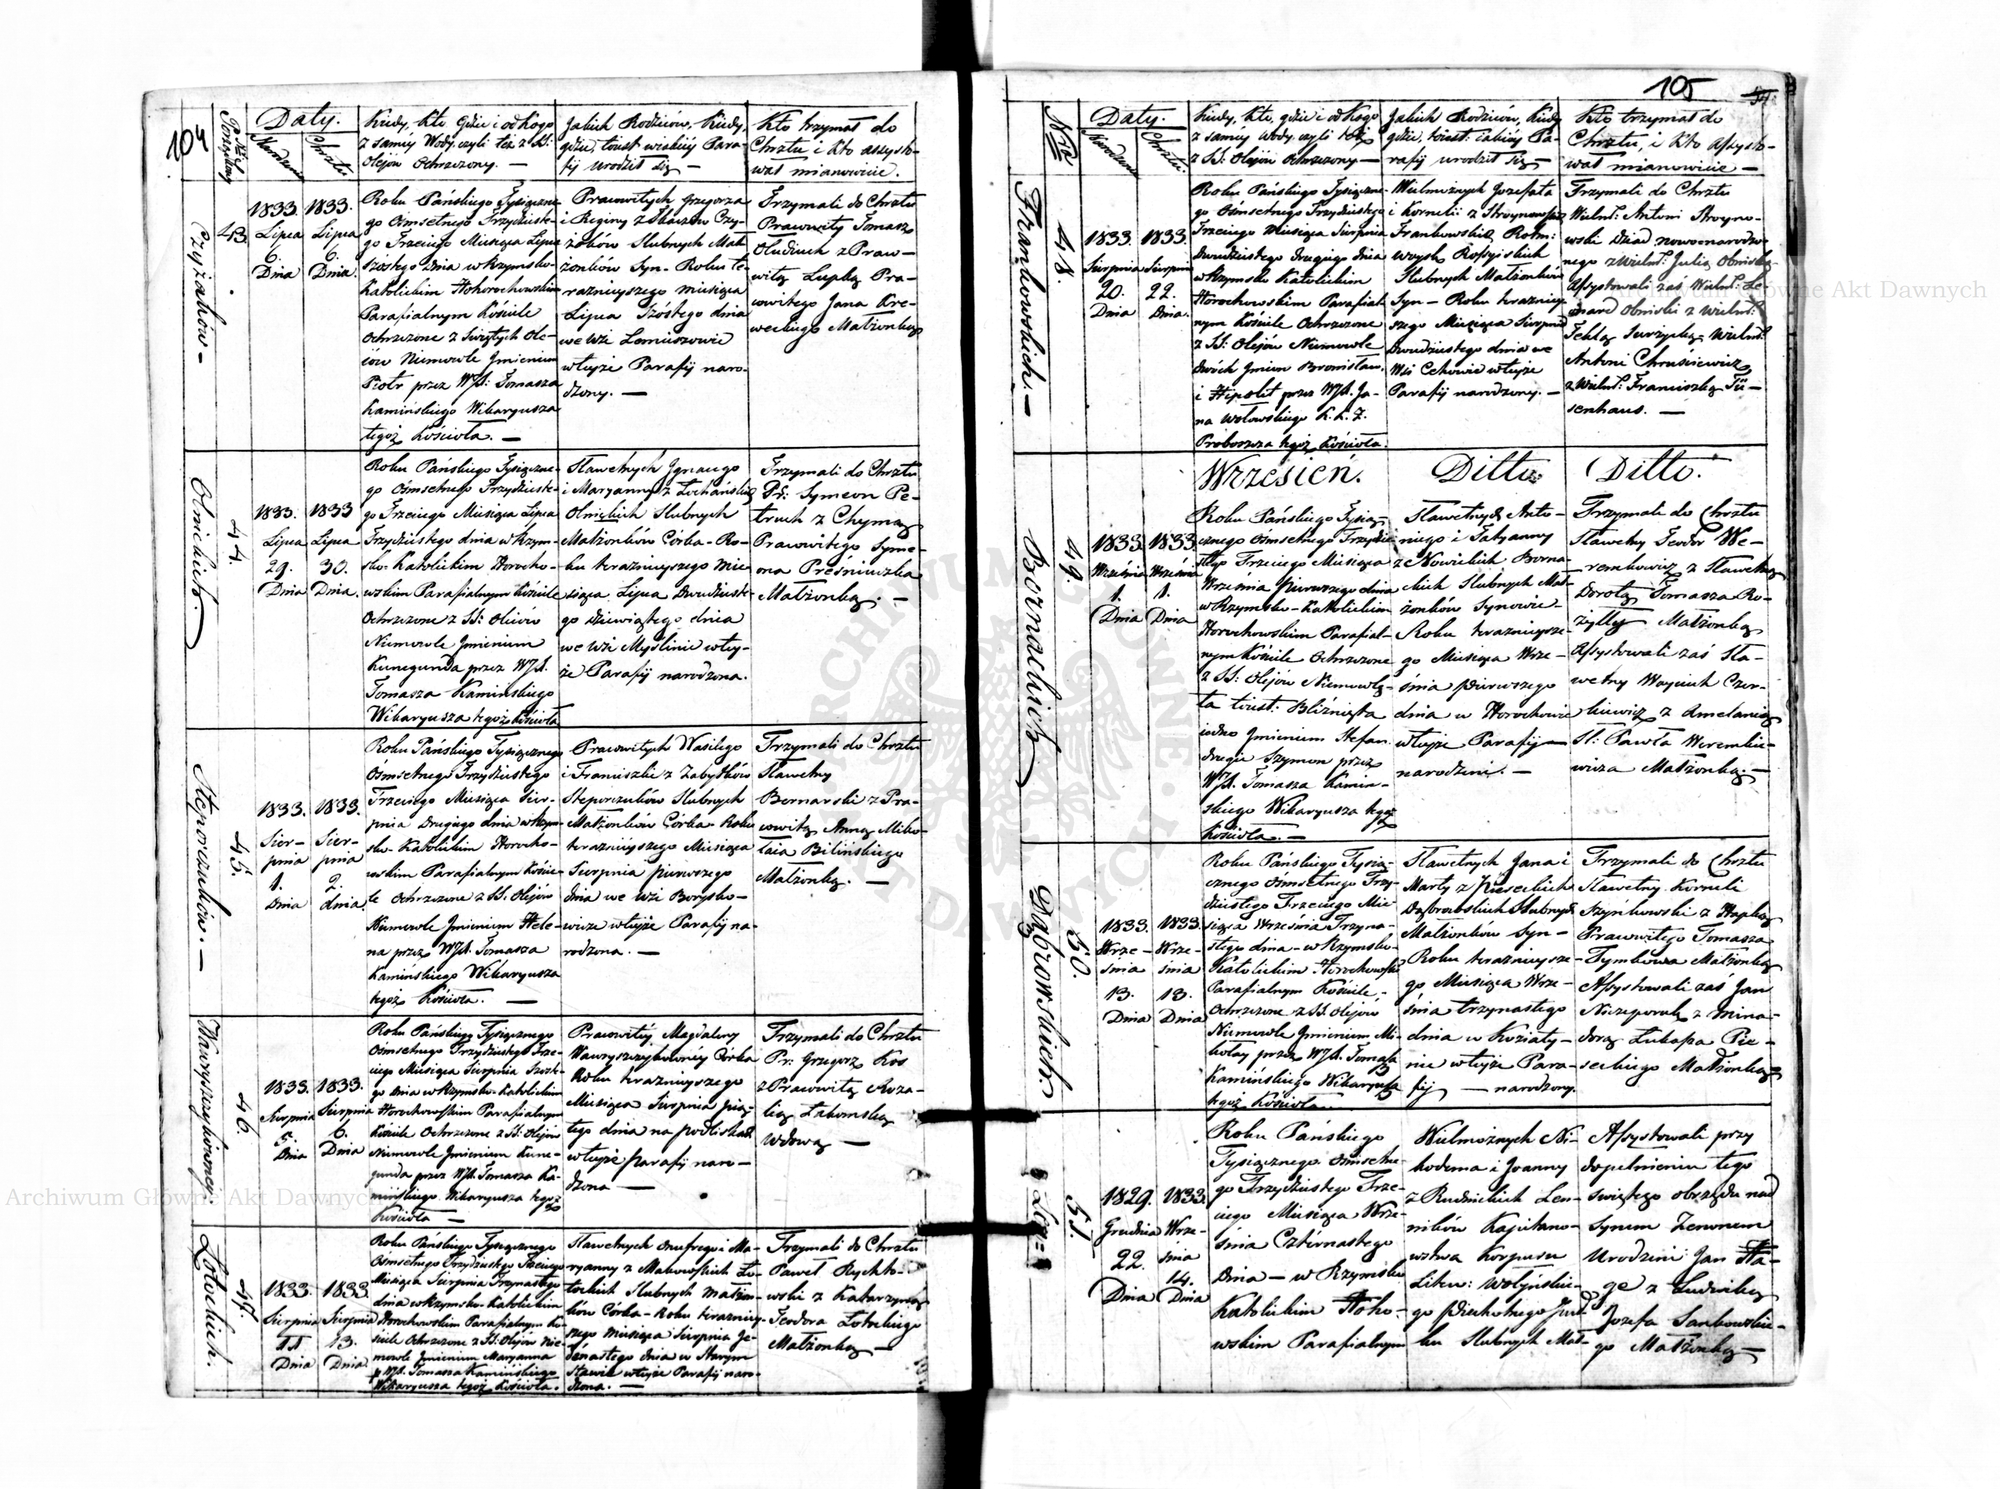 104
Nr
Porządkowy
Daty.
Narodzenia
Chrztu
Kiedy, Kto, gdzie i od kogo
z samey Wody czyli też z SS:
Olejów Ochrzczony. —
Jakich Rodziców, Kiedy,
gdzie, toiest w iakiey Para-
fij urodził się —
Kto trzymał do
Chrztu i Kto assysto-
wał mianowicie.
Czyżaków —
43.
1833.
Lipca
6.
Dnia
1833.
Lipca
6.
Dnia.
Roku Pańskiego Tysiączne-
go Ośmsetnego Trzydzieste-
go Trzeciego Miesiąca Lipca
szóstego dnia w Rzymsko-
Katolickim Horochowskim
Parafialnym Kościele
Ochrzczone z Świętych Ole-
iów Niemowle Jmieniem
Piotr przez WJX: Tomasza
Kamińskiego Wikaryusza
tegoż Kościoła. —
Pracowitych Grzegorza
i Reginy
Czy-
żaków Slubnych Mał-
żonków Syn — Roku te-
raznieyszego miesiąca
Lipca Szóstego dnia
we Wsi Łemieszowie
wteyże Parafij naro-
dzony. —
Trzymali do Chrztu
Pracowity Tomasz
z Praw-
witą
Pra-
cowitego Jana Kre-
weckiego Małżonką
Olnickich.
44.
1833.
Lipca
29.
Dnia
1833
Lipca
30.
Dnia.
Roku Pańskiego Tysiączne-
go Ośmsetnego Trzydzieste-
go Trzeciego Miesiąca Lipca
Trzydziestego dnia w Rzym-
sko-Katolickim Horocho-
wskim Parafialnym Kościele
Ochrzczone z SS: Oleiów
Niemowle Jmieniem
Kunegunda przez WJX.
Tomasza Kamińskiego
Wikaryusza tegoż Kościoła
Sławetnych Jgnacego
i Maryanny z
Olnickich Slubnych
Małżonków Córka — Ro-
ku teraznieyszego mie-
siąca Lipca Dwudzieste-
go dziewiątego dnia
we Wsi Myślinie wtey-
że Parafij narodzona.
Trzymali do Chrztu
Pr: Symeon Pe-
truch z Chymą
Pracowitego Syme-
ona
Małżonką. —
Steporczuków. —
45.
1833.
Sier-
pnia
1.
Dnia
1833.
Sier-
pnia
2.
dnia.
Roku Pańskiego Tysiącznego
Ośmsetnego Trzydziestego
Trzeciego Miesiąca Sier-
pnia Drugiego dnia w Rzym-
sko-Katolickim Horocho-
wskim Parafialnym Koście-
le Ochrzczone z SS: Olejów
Niemowle Jmieniem Hele-
na przez WJX. Tomasza
Kamińskiego Wikaryusza
tegoż Kościoła. —
Pracowitych Wasilego
i Franciszki z Zabytków
Steporczuków Slubnych
Małżonków Córka — Roku
teraznieyszego Miesiąca
Sierpnia pierwszego
dnia we Wsi Borysko-
wicze wteyże Parafij na-
rodzona. —
Trzymali do Chrztu
Sławetny
Bernarski z Pra-
cowitą Anną Miko-
łaia Bilińskiego
Małżonką. —
46.
1833.
Sierpnia
5.
Dnia
1833.
Sierpnia
6.
Dnia
Roku Pańskiego Tysiącznego
Ośmsetnego Trzydziestego Trze-
ciego Miesiąca Sierpnia Szóste-
go dnia w Rzymsko-Katolickim
Horochowskim Parafialnym
Kościele Ochrzczone z SS: Olejów
Niemowle Jmieniem Kune-
gunda przez WJX. Tomasza Ka-
mińskiego Wikaryusza tegoż
Kościoła —
Pracowitey Magdaleny
Córka
Roku teraznieyszego
Miesiąca Sierpnia pią-
tego dnia na Podliskach
wteyże Parafij naro-
dzona —
Trzymali do Chrztu
Pr: Grzegorz Kos
z Pracowitą Roza-
lią
wdową —
Łotockich.
47.
1833.
Sierpnia
11
Dnia
1833.
Sierpnia
13.
Dnia
Roku Pańskiego Tysiącznego
Ośmsetnego Trzydziestego Trzeciego
Miesiąca Sierpnia Trzynastego
dnia w Rzymsko-Katolickim
Horochowskim Parafialnym Ko-
ściele Ochrzczone z SS: Olejów Nie-
mowle Jmieniem Maryanna
p. WJX. Tomasza Kamińskiego
Wikaryusza tegoż Kościoła.
Sławetnych Onufrego i Ma-
ryanny z Makowskich Ło-
tockich Slubnych Małżon-
ków Córka — Roku terazniey-
szego miesiąca Sierpnia Je-
denastego dnia w Starym
Stawie wteyże Parafij naro-
dzona. —
Trzymali do Chrztu
Paweł Rychto-
wski z Katarzyną
Teodora Łotockiego
Małżonką —
105
Nro
Daty.
Narodzenia
Chrztu
Kiedy, Kto, gdzie i od Kogo
z samey Wody czyli też
z SS. Olejów Ochrzczony —
Jakich Rodziców, Kiedy
gdzie, toiest: w iakiey Pa-
rafij urodził się —
Kto trzymał do
Chrztu, i Kto Assysto-
wał mianowicie —
Frankowskich. —
48.
1833.
Sierpnia
20.
Dnia
1833.
Sierpnia
22.
Dnia.
Roku Pańskiego Tysiączne-
go Ośmsetnego Trzydziestego
Trzeciego Miesiąca Sierpnia
Dwudziestego Drugiego dnia
w Rzymsko Katolickim
Horochowskim Parafial-
nym Kościele Ochrzczone
z SS. Olejów Niemowle
dwóch Jmion Bronisław
i Hipolit przez WJX. Ja-
na Wołowskiego K. K. Z.
Proboszcza tegoż Kościoła.
Wielmożnych Jozefata
i Kornelii z Stroynowskich
Frankowskich, Rotm:
woysk Rossyiskich
Slubnych Małżonków
Syn — Roku teraźniey-
szego Miesiąca Sierpnia
Dwudziestego dnia we
Wsi Cehowie wteyże
Parafij narodzony. —
Trzymali do Chrztu
Wielm: Antoni Stroyno-
wski Dziad nowonarodzo-
nego z Wielm: Julią Obnińską
Assystowali zaś Wielm: Le-
onard Obniski z Wielm:
Teklą
Wielm:
Antoni Chruściewicz
z Wielm: Franciszką Ti-
senhaus. —
Wrzesień.
Ditto
Ditto.
Bornackich
49.
1833.
Września
1.
Dnia
1833.
Września
1.
Dnia
Roku Pańskiego Tysią-
cznego Ośmsetnego Trzydzie-
stego Trzeciego Miesiąca
Września Pierwszego dnia
w Rzymsko-Katolickim
Horochowskim Parafial-
nym Kościele Ochrzczone
z SS: Olejów Niemowlę-
ta toiest: Bliźnięta
iedno Jmieniem Stefan
drugie Szymon przez
WJX. Tomasza Kamiń-
skiego Wikaryusza tegoż
Kościoła. —
Sławetnych Anto-
niego i Tatyanny
z Nowickich Borna-
ckich Slubnych Mał-
żonków Synowie —
Roku teraznieysze-
go Miesiąca Wrze-
śnia pierwszego
dnia w Horochowie
wteyże Parafij —
narodzeni. —
Trzymali do Chrztu
Sławetny Teodor We-
remkowicz z Sławetną
Dorotą Tomasza Ro-
żytty Małżonką
Assystowali zaś Sła-
wetny Woyciech Czer-
kiewicz z Amelianą
Sł: Pawła Weremkie-
wicza Małżonką —
Dąbrowskich.
50.
1833.
Wrze-
śnia
13.
Dnia
1833.
Wrze-
śnia
13.
Dnia
Roku Pańskiego Tysią-
cznego Ośmsetnego Trzy-
dziestego Trzeciego Mie-
siąca Września Trzyna-
stego dnia — w Rzymsko-
Katolickim Horochowskim
Parafialnym Kościele,
Ochrzczone z SS. Olejów
Niemowle Jmieniem Mi-
kołay przez WJX. Tomasza
Kamińskiego Wikaryusza
tegoż Kościoła. —
Sławetnych Jana i
Marty z Piaseckich
Dąbrowskich Slubnych
Małżonków Syn —
Roku teraznieysze-
go Miesiąca Wrze-
śnia trzynastego
dnia w Koziaty-
nie wteyże Para-
fij — narodzony.
Trzymali do Chrztu
Sławetny Korneli
Szyńkowski z Hapką
Pracowitego Tomasza
Tymkowa Małżonką
Assystowali zaś Jan
z Mina-
dorą Łukasza Pia-
seckiego Małżonką
51.
1829.
Grudnia
22.
Dnia
1833.
Wrze-
śnia
14.
Dnia
Roku Pańskiego
Tysiącznego Ośmsetne-
go Trzydziestego Trze-
ciego Miesiąca Wrze-
śnia Czternastego
Dnia — w Rzymsko
Katolickim Horo-
wskim Parafialnym
Wielmożnych Ni-
kodema i Joanny
z Rudnickich Len-
ników Kapitano-
wstwa Korpusu
Wołyńskie-
go Piechotnego
ku Slubnych Mał-
Assystowali przy
dopełnieniu tego
świętego obrzędu nad
Synem Zenonem
Urodzeni Jan Ha-
ge z Ludwiką
Jozefa Sankowskie-
go Małżonką —
Archiwum Główne Akt Dawnych
Archiwum Główne Akt Dawnych
ARCHIWUM GŁÓWNE AKT DAWNYCH